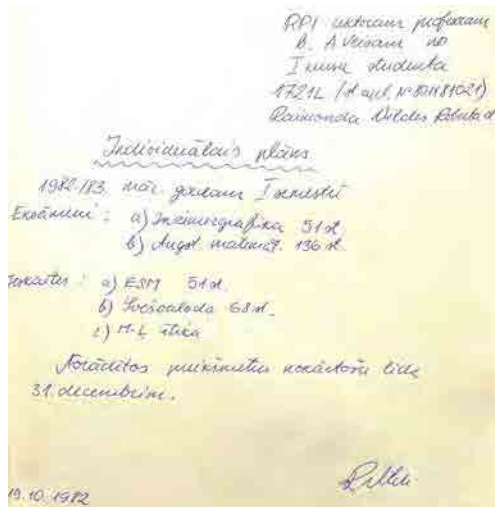 RPI rektoram profesoram
B. A Veisam no
I kursa studenta
1721L (st. apl. № 801181021)
Raimonda Vildes Roberta d.
Individuālais plāns
1982/83. māc. gadam I semestrī
Eksāmeni: a) Inženiergrafika 51 st.
b) Augst. matemāt. 136 st.
Ieskaites: a) ESM 51 st.
b) Svešvaloda 68 st.
c) M-Ļ ētika
Norādītos priekšmetus nokārtošu līdz
31. decembrim.
19.10.1982